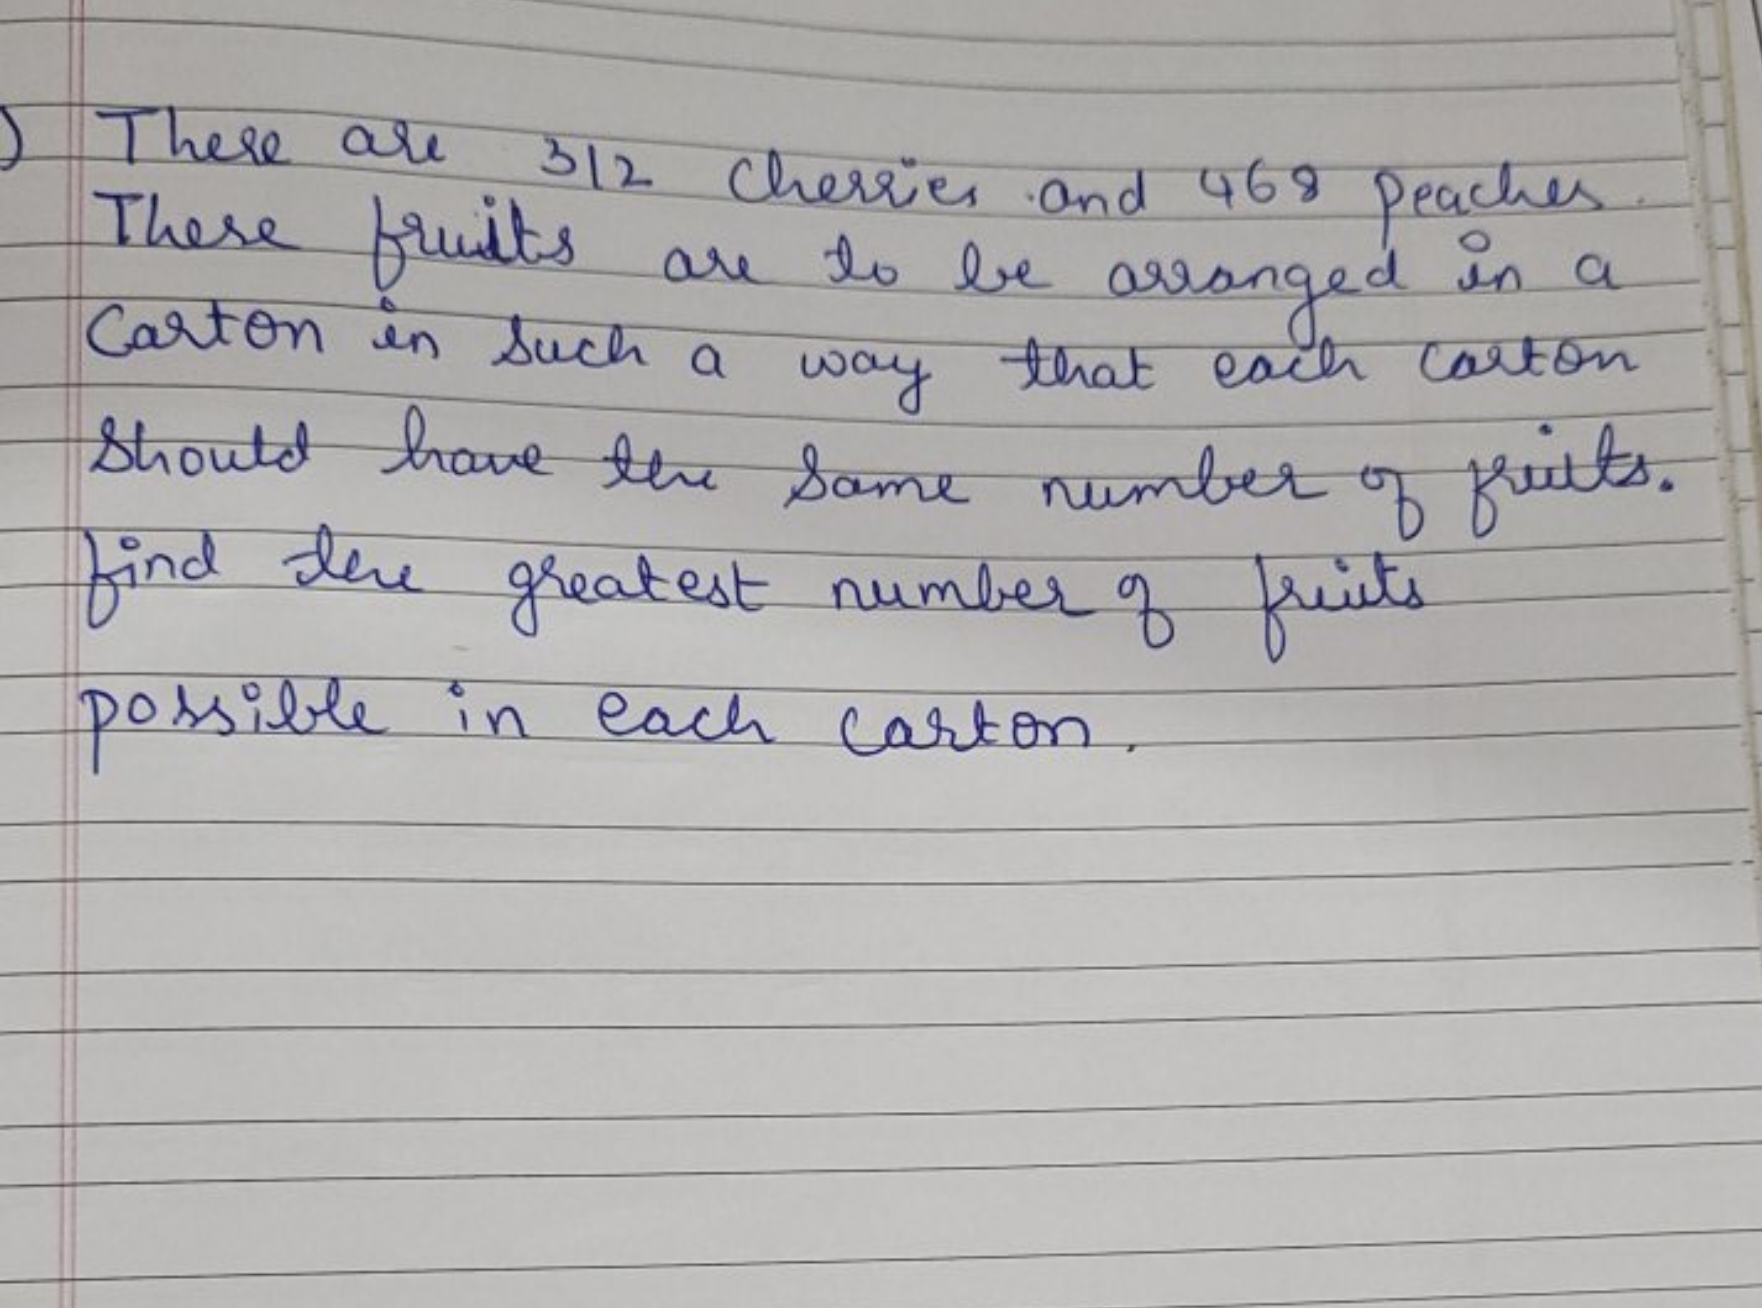 ) There are 312 Cherries and 468 peaches.
These fruits are to be arranged in a
Carton in such a way that each carton
Should have the same number of fruits.
find the greatest number of fruits
possible in each carton.